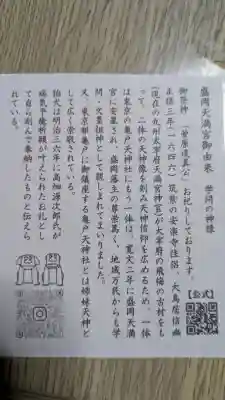 盛岡天満宮御由来 学問の神様
御祭神 (菅原道真公)お祀りしております。
正保三年(一六四六)筑紫の安楽寺住侶、大鳥居信幽
(現在の九州太宰府天満宮神官)が太宰府の飛梅の古材をも
って、二体の天神像を刻み天神信仰を広めるため、一体
は東京の亀戸天神社にもう一体は、寛文二年に盛岡天満
宮に安置され、盛岡藩主の崇敬篤く、地域万民からも学
問・文墨祖神として親しまれてまいりました。
又、東京都亀戸に御鎮座する亀戸天神社とは姉妹天神と
して広く崇敬されている。
狛犬は明治三六年に高畑源次郎氏が
病気平癒祈願が叶えられたお礼とし
て自ら刻んで奉納したものと伝えら
れている。
【公式】